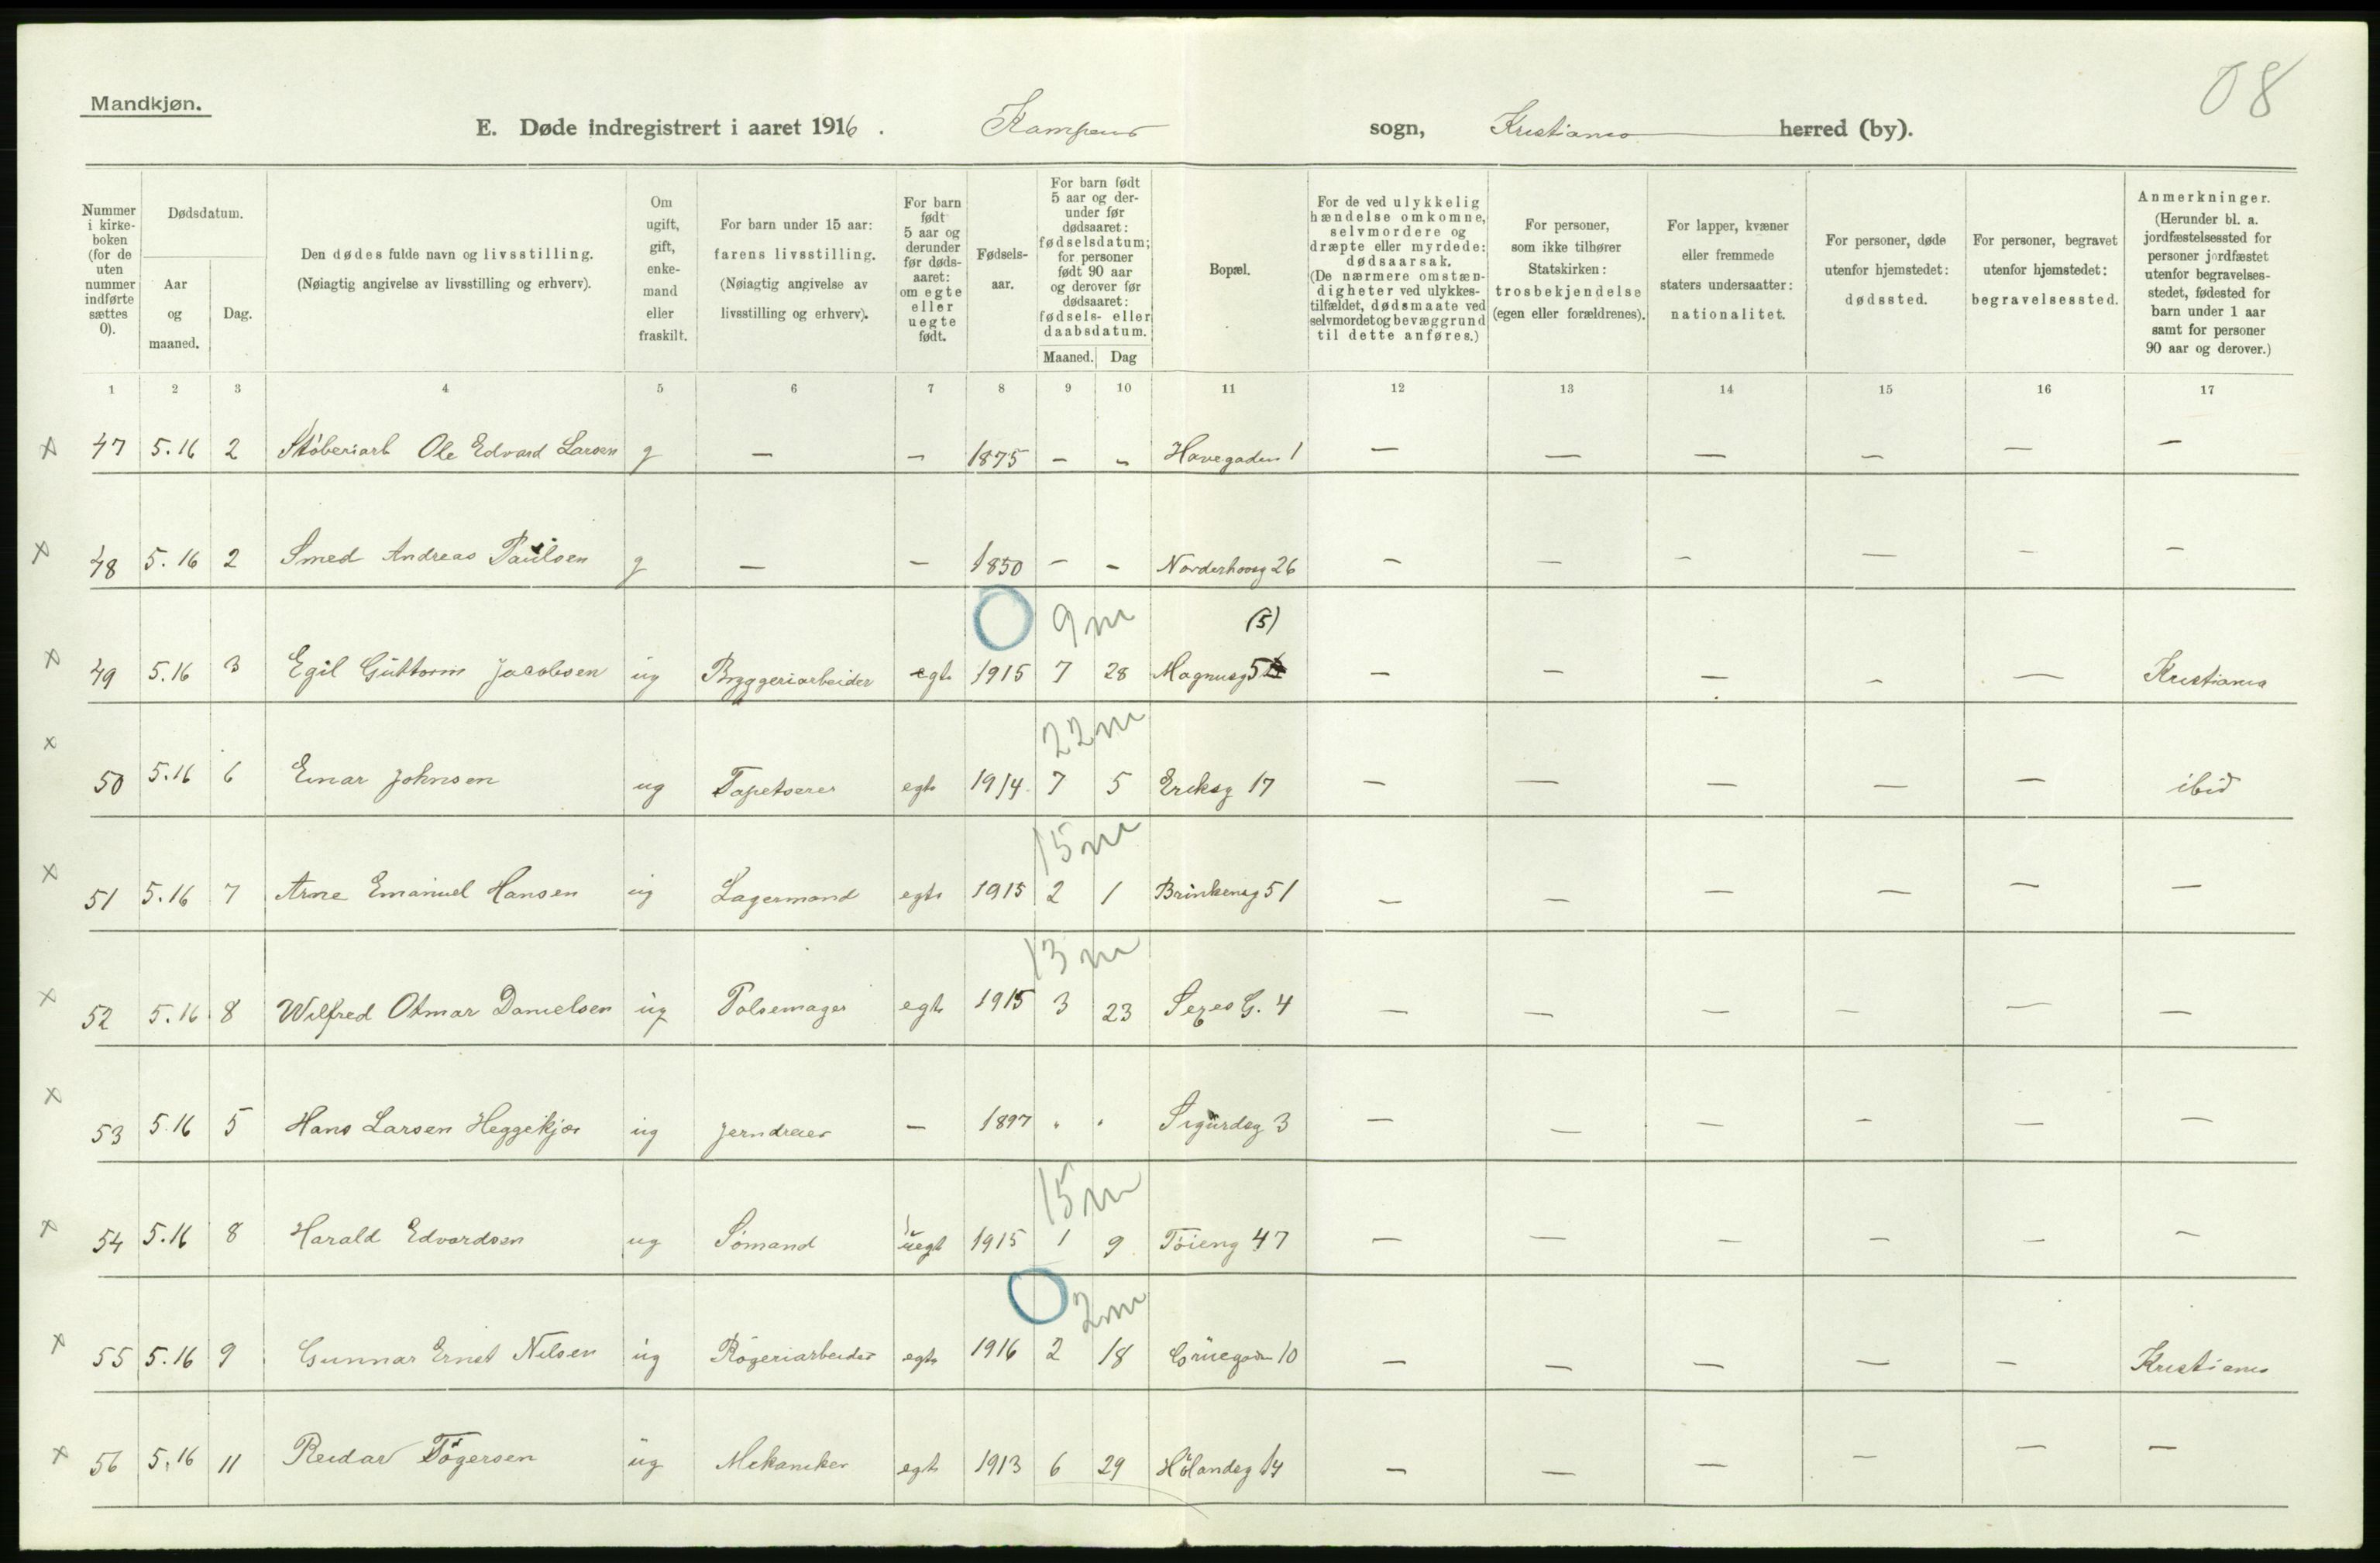 08
Mandkjøn.
E. Døde indregistrert i aaret 1916. Kampens sogn, Kristiania herred (by).
Nummer i kirkeboken (for de uten nummer indførte sættes 0).
Dødsdatum.
Aar og maaned.
Dag.
Den dødes fulde navn og livsstilling. (Nøiagtig angivelse av livsstilling og erhverv).
Om ugift, gift, enkemand eller fraskilt.
For barn under 15 aar: farens livsstilling. (Nøiagtig angivelse av livsstilling og erhverv).
For barn født 5 aar og derunder før dødsaaret: om egte eller uegte født.
Fødselsaar.
For barn født 5 aar og derunder før dødsaaret: fødselsdatum; for personer født 90 aar og derover før dødsaaret: fødsels- eller daabsdatum.
Maaned. Dag
Bopæl.
For de ved ulykkelig hændelse omkomne, selvmordere og dræpte eller myrdede: dødsaarsak. (De nærmere omstændigheter ved ulykkestilfældet, dødsmaate ved selvmordet og bevæggrund til dette anføres.)
For personer, som ikke tilhører Statskirken: trosbekjendelse (egen eller forældrenes).
For lapper, kvæner eller fremmede staters undersaatter: nationalitet.
For personer, døde utenfor hjemstedet: dødssted.
For personer, begravet utenfor hjemstedet: begravelsessted.
Anmerkninger. (Herunder bl. a. jordfæstelsessted for personer jordfæstet utenfor begravelsesstedet, fødested for barn under 1 aar samt for personer 90 aar og derover.)
1 2 3 4 5 6 7 8 9 10 11 12 13 14 15 16 17
x 47 5.16 2 Stöberiarb Ole Edvard Larsen g — — 1875 — — Havegaden 1 — — — — — —
x 48 5.16 2 Smed Andreas Paulsen g — — 1850 — — Norderhovsg 26 — — — — — —
9 m (5)
x 49 5.16 3 Egil Guttorm Jacobsen ug Bryggeriarbeider egte 1915 7 28 Magnusg 5 — — — — — Kristiania
22 m
x 50 5.16 6 Einar Johnsen ug Tapetserer egte 1914 7 5 Eriksg 17 — — — — — ibid
15 m
x 51 5.16 7 Arne Emanuel Hansen ug Lagermand egte 1915 2 1 Brinkensg 51 — — — — — —
13 m
x 52 5.16 8 Wilfred Otmar Danielsen ug Pølsemager egte 1915 3 23 Sexes G. 4 — — — — — —
x 53 5.16 5 Hans Larsen Heggekjær ug Jerndreier — 1897 " " Sigurdsg 3 — — — — — —
15 m
x 54 5.16 8 Harald Edvardsen ug Sömand uegt 1915 1 9 Töieng 47 — — — — — —
2 m
x 55 5.16 9 Gunnar Ernst Nilsen ug Rögeriarbeider egte 1916 2 18 Grüegaden 10 — — — — — Kristiania
x 56 5.16 11 Reidar Tögersen ug Mekaniker egte 1913 6 29 Hölandsg 14 — — — — — —